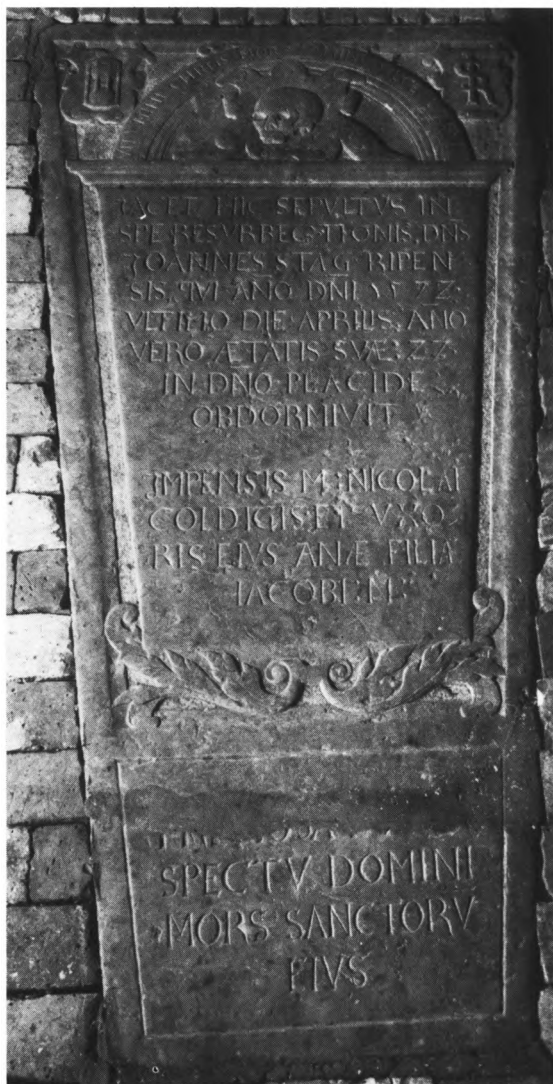 IACET HIC SEPVLTVS IN
SPE RESVRRECTIONIS, DNS
IOANNES STAG RIPEN
SIS, QVI ANO DNI 1572
VLTIMO DIE APRILIS, ANO
VERO ÆTATIS SVÆ: 22
IN DNO PLACIDE
OBDORMIVIT
IMPENSIS M: NICOLAI
COLDIGIS ET VXO
RIS EIVS ANÆ FILIA
IACOBI: M:
SPECTV DOMINI
MORS SANCTORV
EIVS